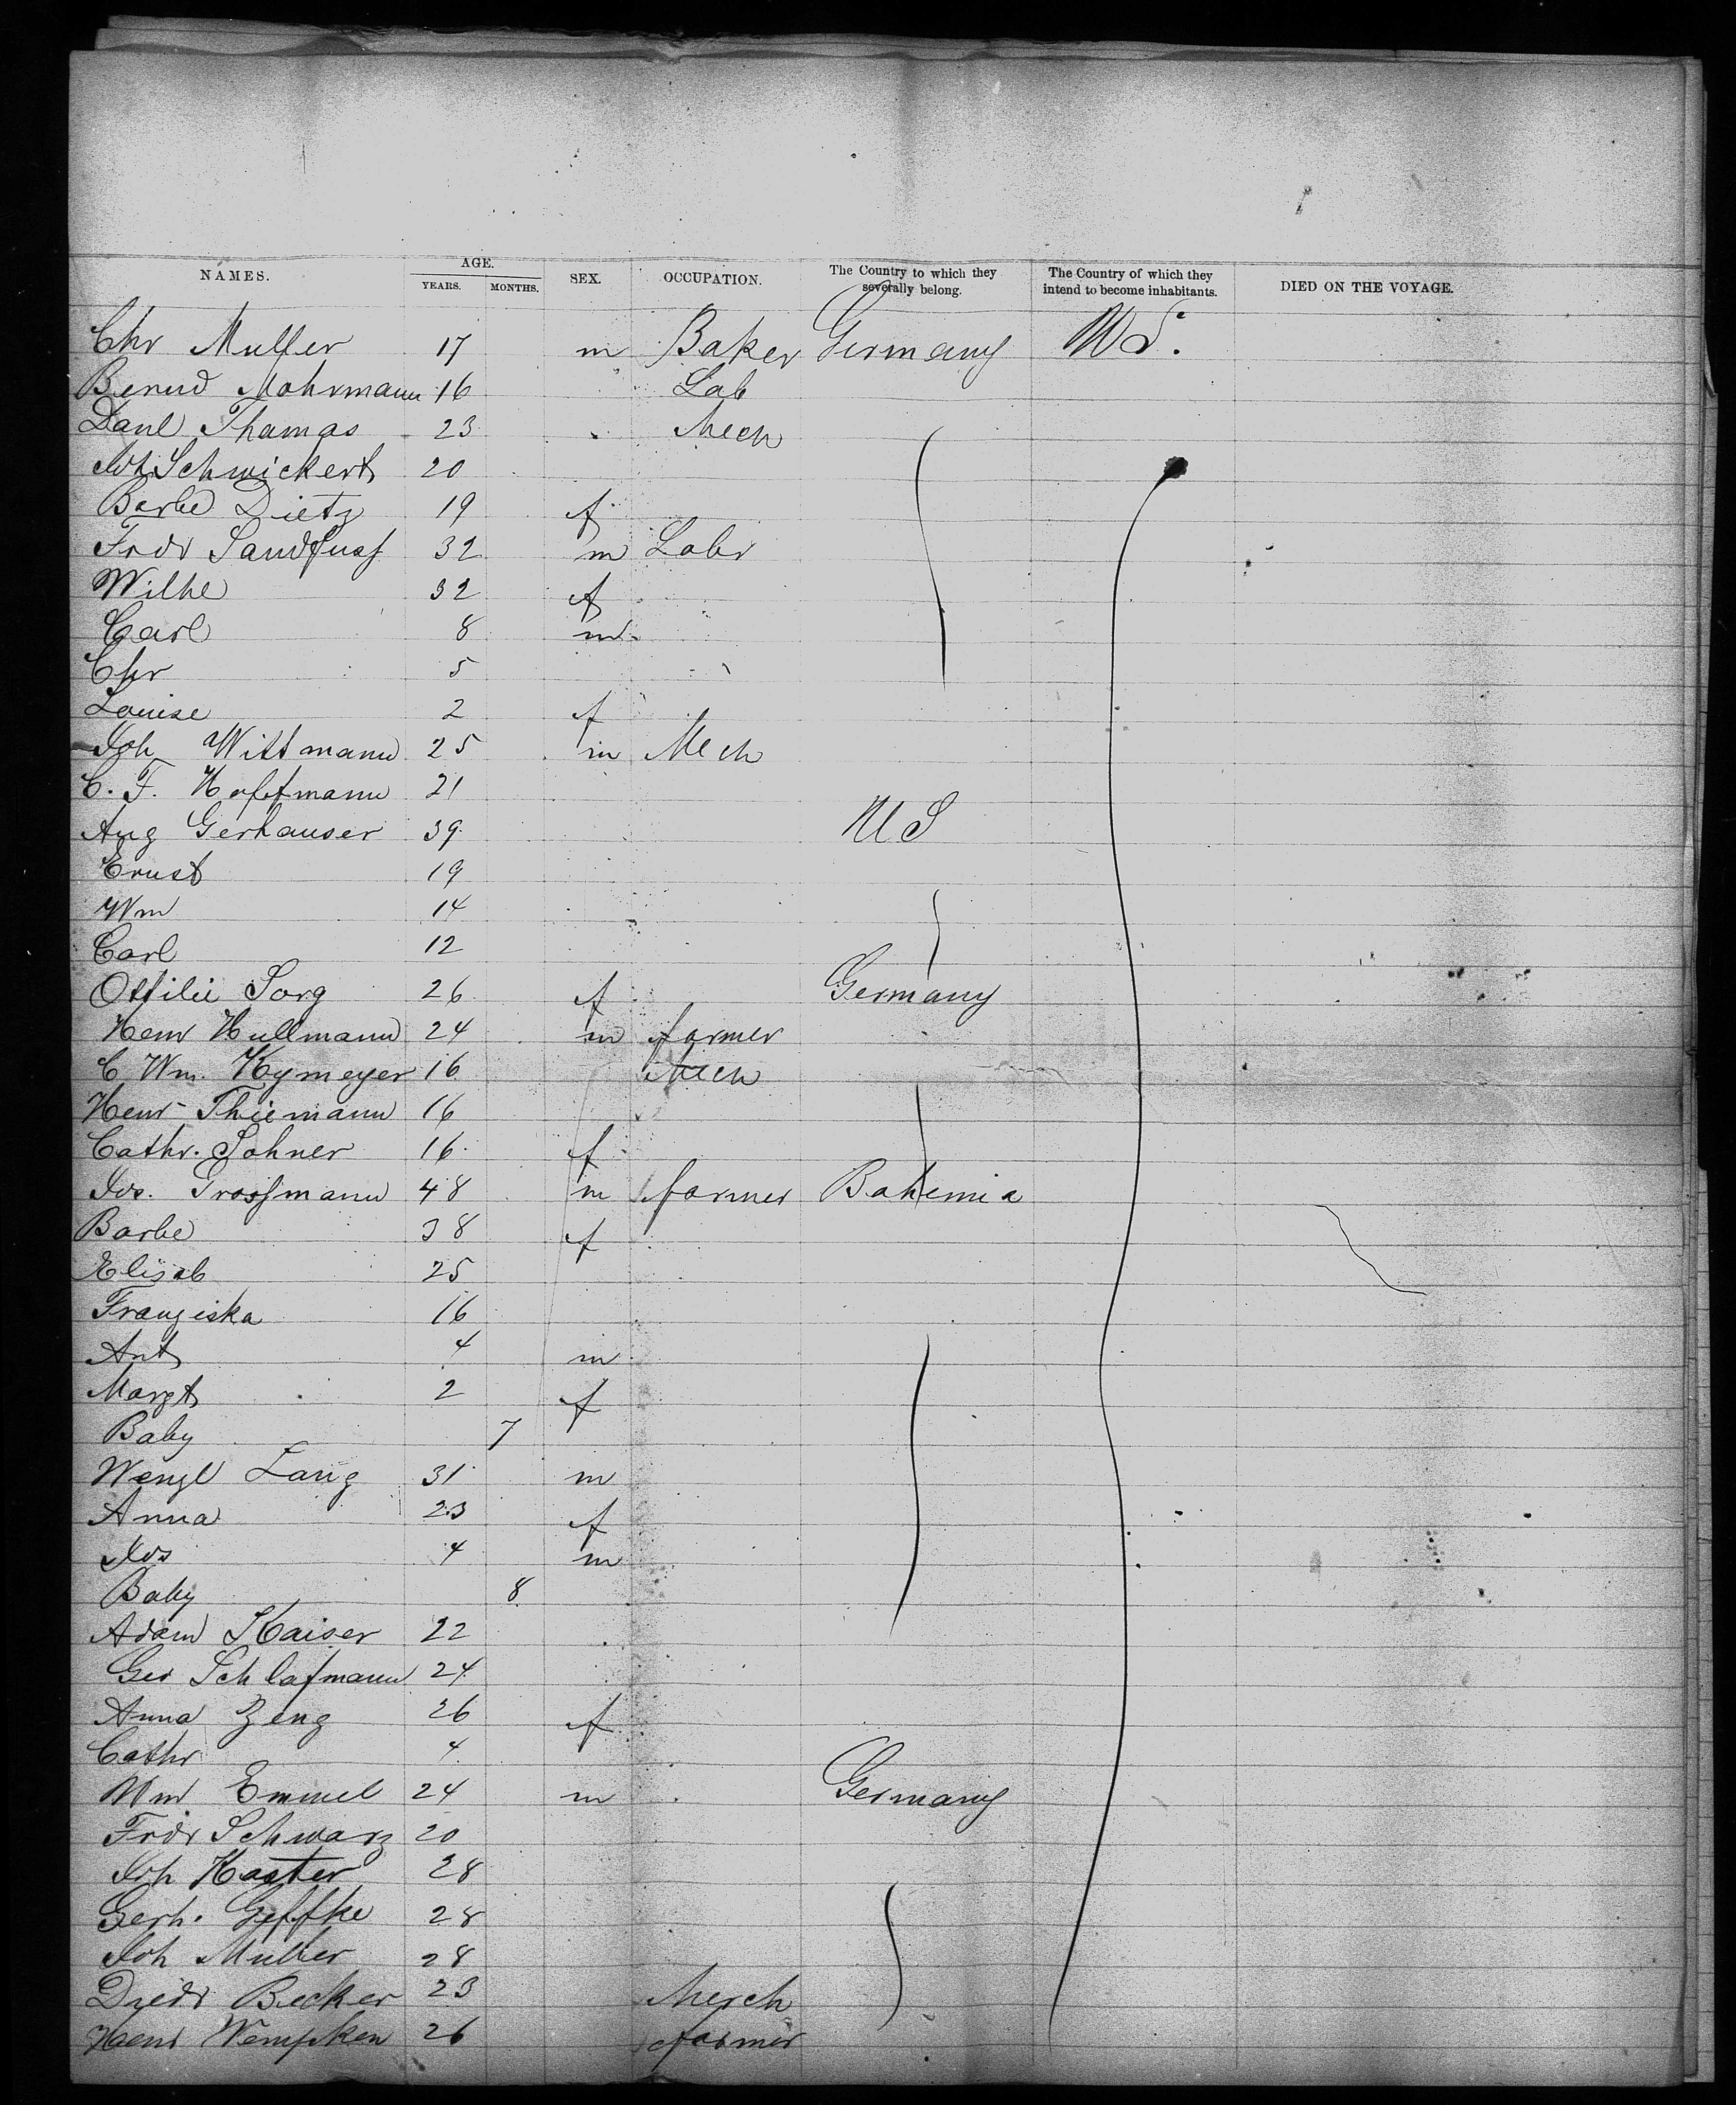 NAMES. AGE. YEARS. MONTHS. SEX. OCCUPATION. The Country to which they severally belong. The Country of which they intend to become inhabitants. DIED ON THE VOYAGE.
Chr Muller 17 m Baker Germany US.
Bernd Mohrmann 16 Lab
Danl Thamas 23 Mech
Joh Schwickert 20
Barbe Dietz 19 f
Fredr Sandfuss 32 m Labr
Wilhe 32 f
Carl 8 m
Chr 5
Louise 2 f
Joh Wittmann 25 m Mech
C. F. Hoffmann 21
Aug Gerhauser 39 US
Ernst 19
Wm 14
Carl 12
Ottilie Sorg 26 f Germany
Henr Hullmann 24 m farmer
C Wm. Kymeyer 16 Mech
Henr Thiemann 16
Cathr. Sohner 16 f
Jos. Grossmann 48 m farmer Bohemia
Barbe 38 f
Elisab 25
Franziska 16
Ant 4 m
Margt 2 f
Baby 7
Wenzl Lang 31 m
Anna 23 f
Jos 4 m
Baby 8
Adam Kaiser 22
Geo Schlafmann 24
Anna Zeng 26 f
Cathr 4
Wm Emmel 24 m Germany
Fredr Schwarz 20
Joh Kaster 28
Gerh. Geffke 28
Joh Muller 28
Diedr Becker 23 Merch
Henr Wempken 26 farmer